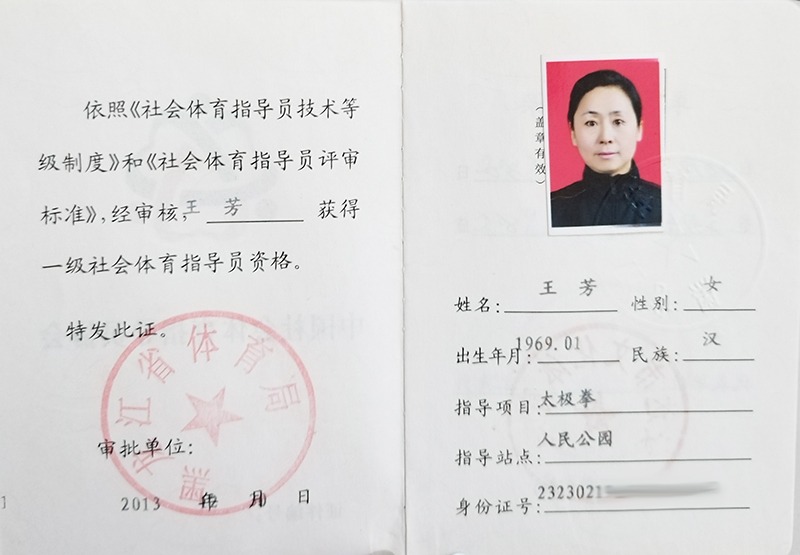 依照《社会体育指导员技术等
级制度》和《社会体育指导员评审
标准》，经审核，王 芳 获得
一级社会体育指导员资格。
特发此证。
黑龙江省体育局
审批单位：
2013 年 月 日
（盖章有效）
姓名：王 芳 性别：女
出生年月：1969.01 民族：汉
指导项目：太极拳
指导站点：人民公园
身份证号：2323021